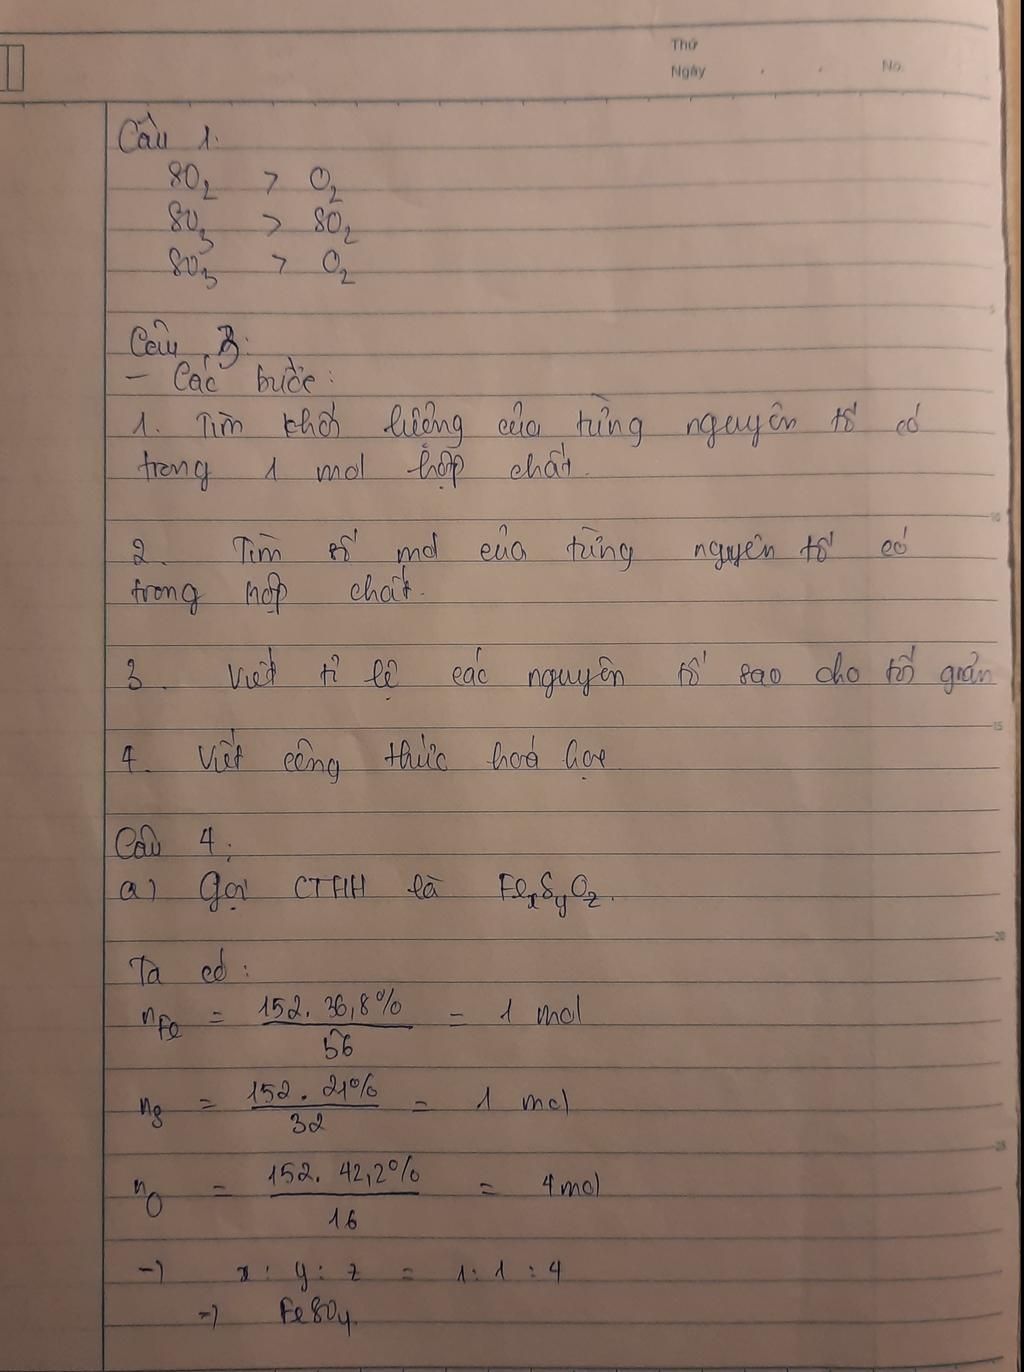 Thứ
Ngày . . No.
Câu 1.
SO₂ > O₂
SO₃ > SO₂
SO₃ > O₂
Câu 3:
– Các bước:
1. Tìm khối lượng của từng nguyên tố có
trong 1 mol hợp chất.
2. Tìm số mol của từng nguyên tố có
trong hợp chất.
3. Viết tỉ lệ các nguyên tố sao cho tối giản
4. Viết công thức hoá học
Câu 4:
a) Gọi CTHH là FeₓSᵧO_z.
Ta có:
n_Fe = (152. 36,8%)/56 = 1 mol
n_S = (152. 21%)/32 = 1 mol
n_O = (152. 42,2%)/16 = 4 mol
→ x : y : z = 1 : 1 : 4
→ FeSO₄.